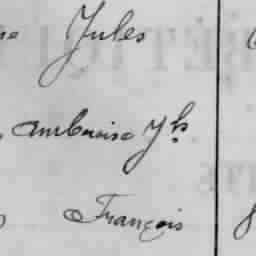 Jules
Ambroise Jh
François